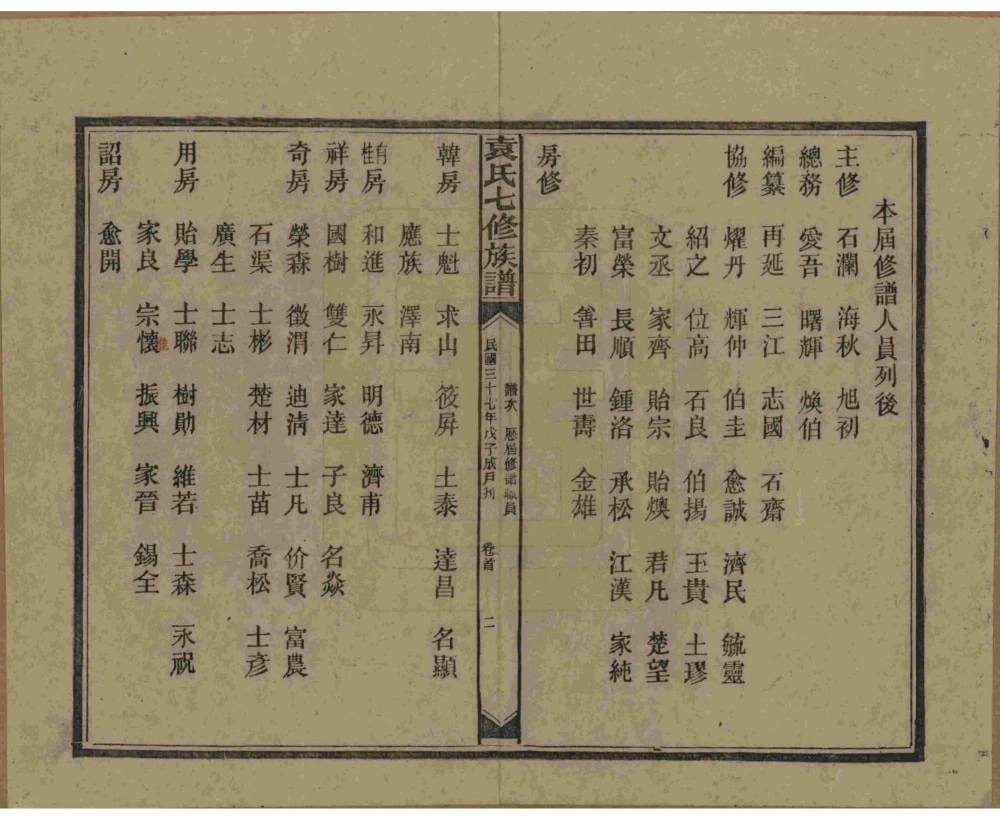 本屆修譜人員列後
主修 石瀾 海秋 旭初
總務 愛吾 曙輝 煥伯
編纂 再延 三江 志國 石齋
協修 燿丹 輝仲 伯圭 愈誠 濟民 毓靈
紹之 位高 石良 伯揚 玉貴 士璆
文丞 家齊 貽宗 貽燠 君凡 楚望
富榮 長順 鍾洛 承松 江漢 家純
秦初 善田 世壽 金雄
房修
袁氏七修族譜
譜次 歷屆修譜職員
民國三十七年戊子 卷首 二
韓房 士魁 求山 筱屏 士泰 達昌 名顯
應族 澤南
有桂房 和進 永昇 明德 濟甫
祥房 國樹 雙仁 家達 子良 名焱
奇房 榮森 徵渭 迪清 士凡 价賢 富農
石渠 士彬 楚材 士苗 喬松 士彥
廣生 士志
用房 貽學 士聯 樹勛 維若 士森 永祝
家良 宗懷 振興 家晉 錫全
詔房 愈開